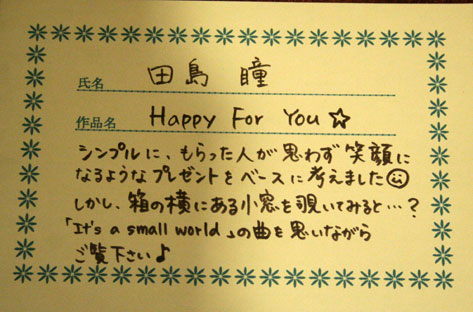 氏名 田島 瞳
作品名 Happy For You☆
シンプルに、もらった人が思わず笑顔に
なるようなプレゼントをベースに考えました☺
しかし、箱の横にある小窓を覗いてみると…?
「It's a small world」の曲を思いながら
ご覧下さい♪